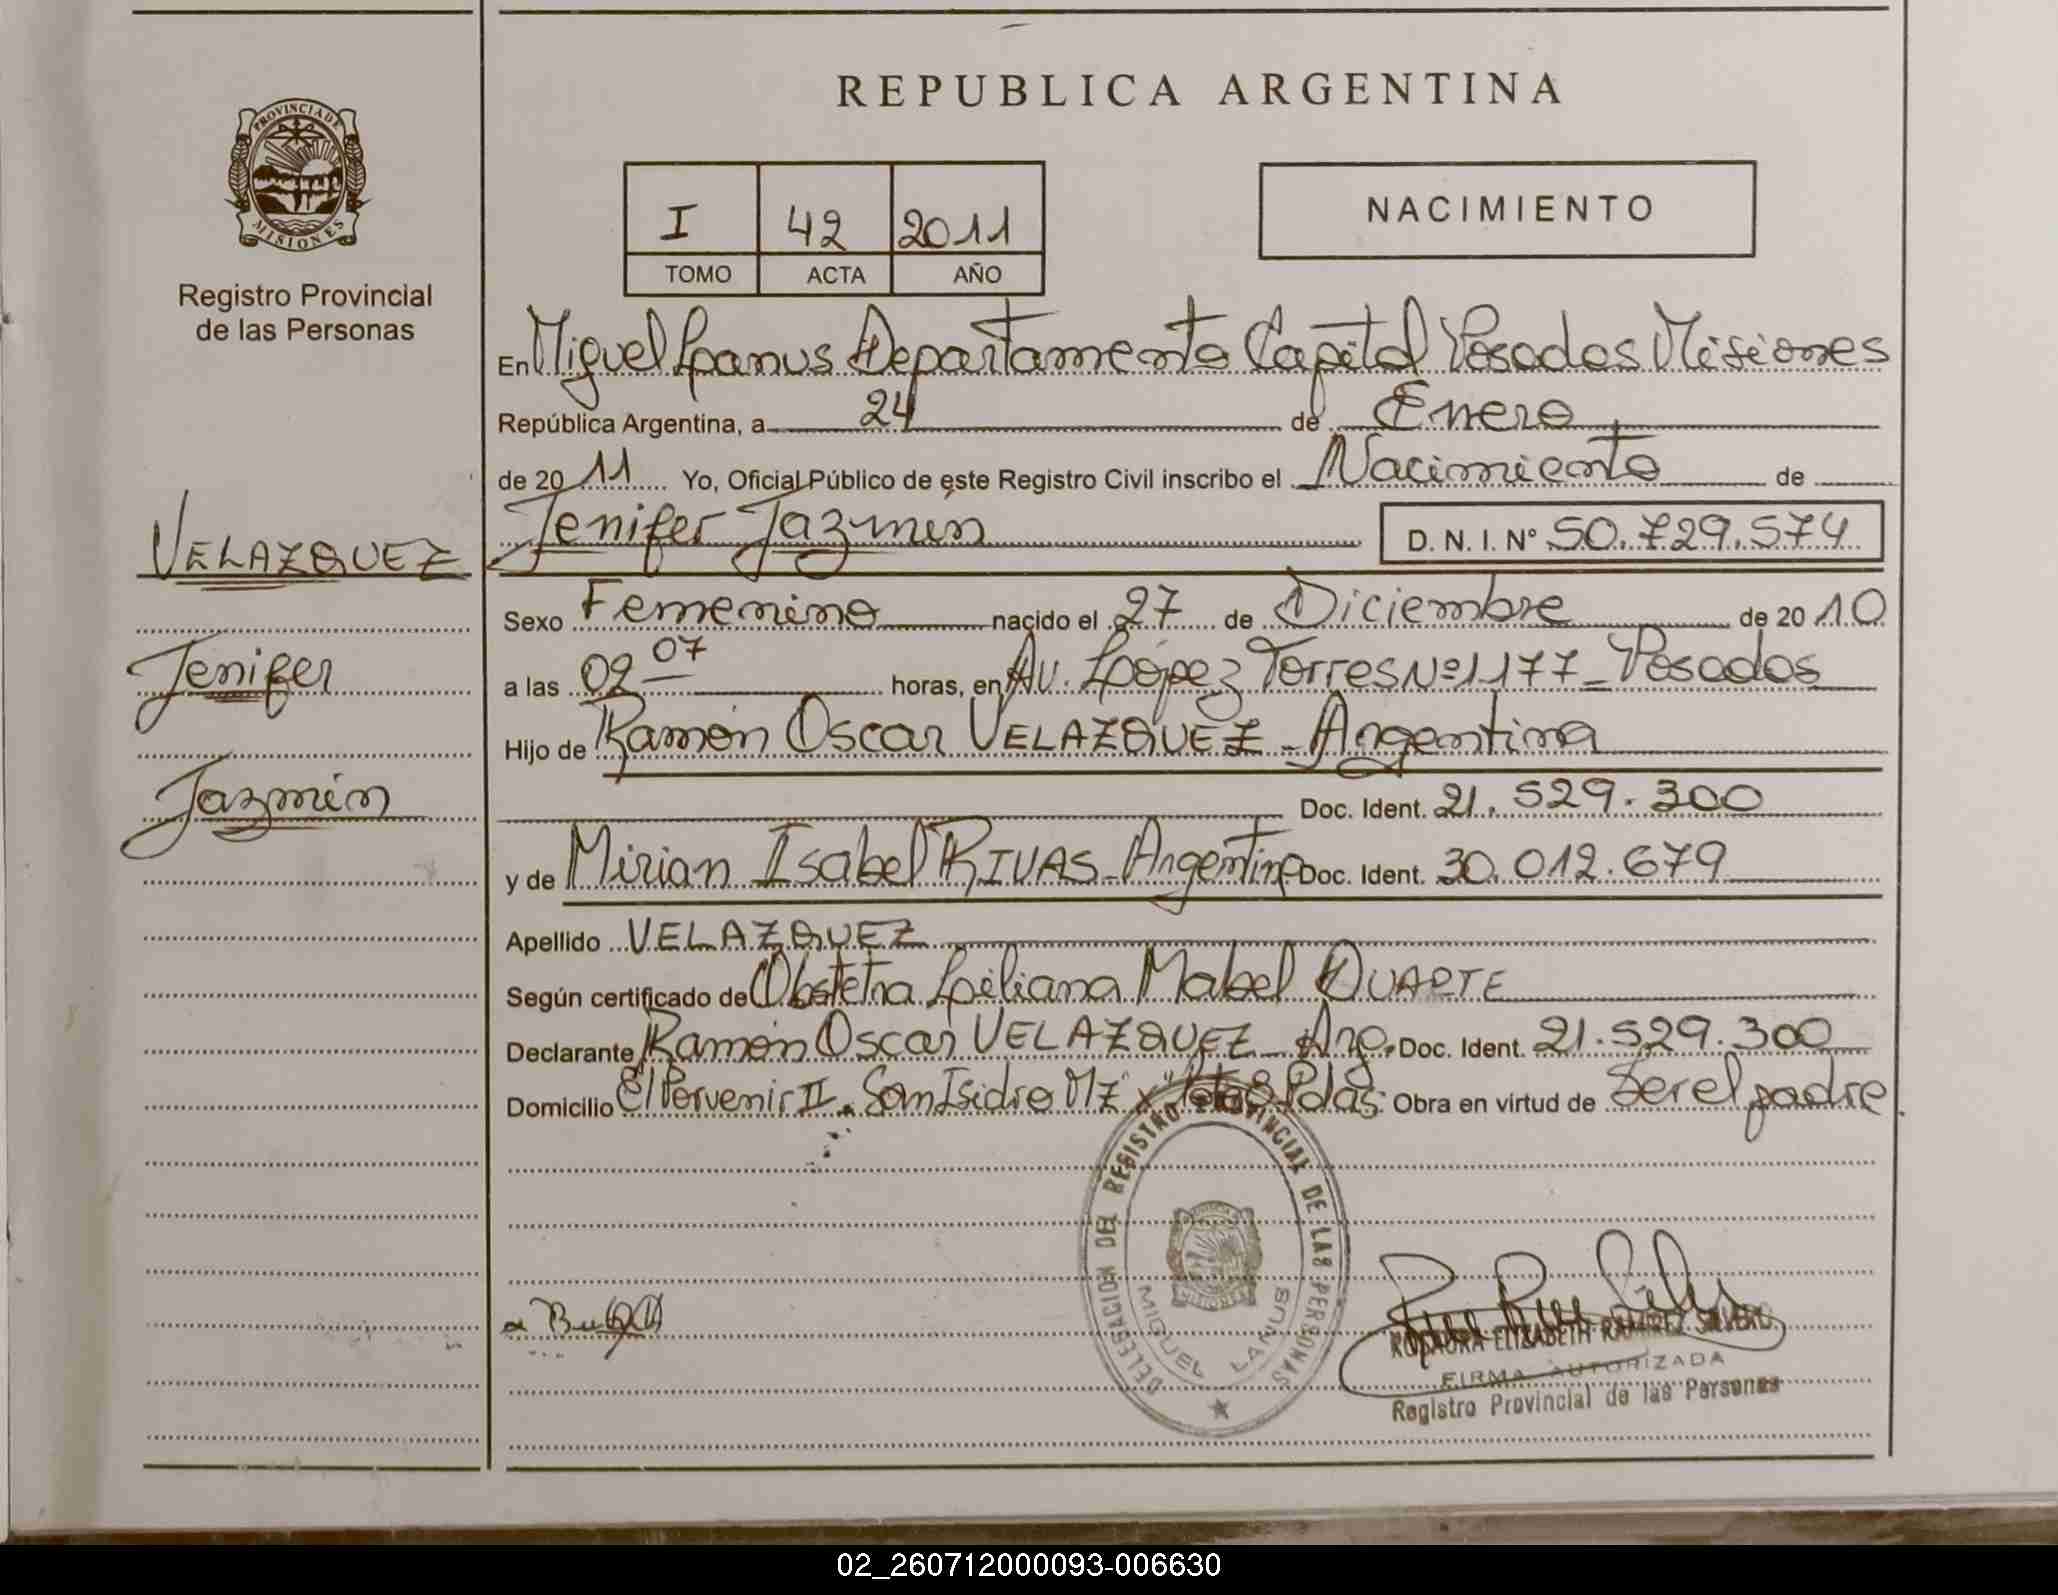 REPUBLICA ARGENTINA
PROVINCIA DE
MISIONES
Registro Provincial
de las Personas
I 42 2011
TOMO ACTA AÑO
NACIMIENTO
En Miguel Lanus Departamento Capital Posadas Misiones
República Argentina, a 24 de Enero
de 2011 Yo, Oficial Público de este Registro Civil inscribo el Nacimiento de
Jenifer Jazmín D. N. I. Nº 50.729.574
VELAZQUEZ
Jenifer
Jazmín
Sexo Femenino nacido el 27 de Diciembre de 2010
a las 02 07 horas, en Av. López Torres Nº 1177 - Posadas
Hijo de Ramón Oscar VELAZQUEZ - Argentina
Doc. Ident. 21.529.300
y de Mirian Isabel RIVAS - Argentina Doc. Ident. 30.012.679
Apellido VELAZQUEZ
Según certificado de Obstetra Liliana Mabel DUARTE
Declarante Ramón Oscar VELAZQUEZ - Arg. Doc. Ident. 21.529.300
Domicilio El Porvenir II. San Isidro Mz "x" Lote 8 Pdas. Obra en virtud de Ser el padre
DELEGACION DEL REGISTRO PROVINCIAL DE LAS PERSONAS
MISIONES
MIGUEL LANUS
ROSAURA ELIZABETH RAMIREZ SILVERO
FIRMA AUTORIZADA
Registro Provincial de las Personas
02_260712000093-006630